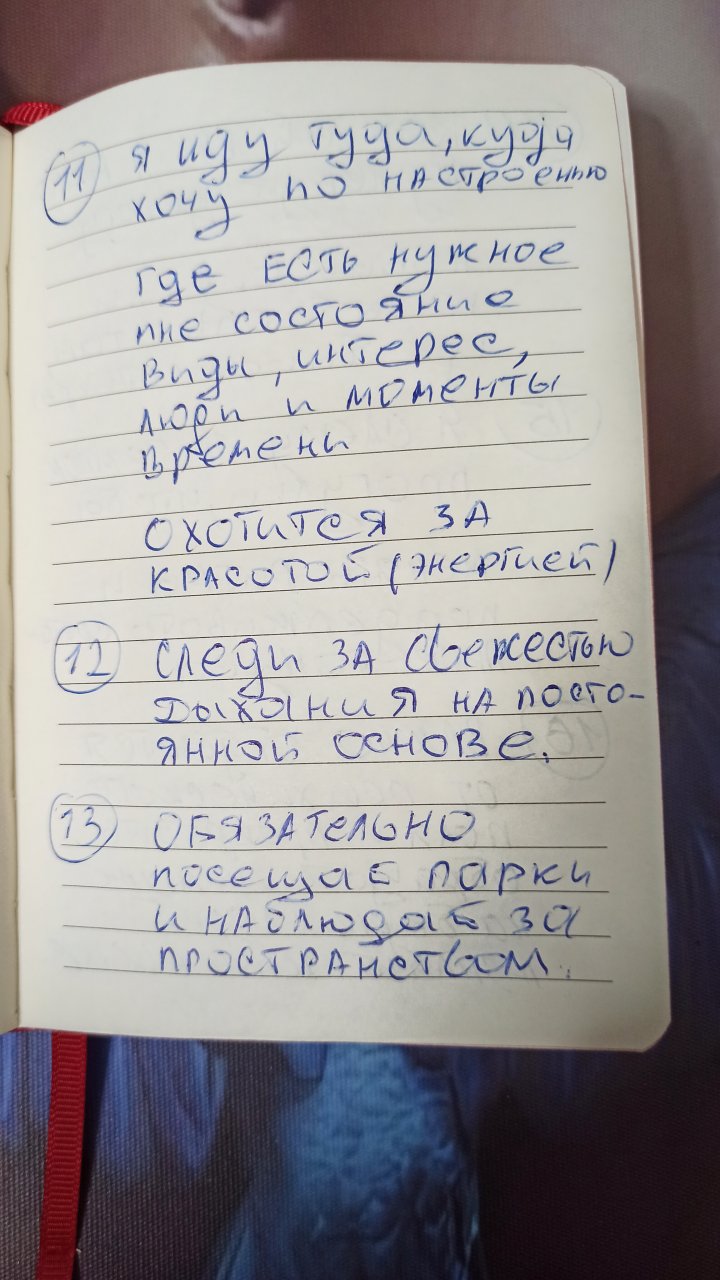 11 я иду туда, куда
хочу по настроенью
где есть нужное
мне состояние
виды, интерес,
люди и моменты
времени
охотится за
красотой (энергией)
12 следи за свежестью
дыхания на посто-
янной основе.
13 обязательно
посещаю парки
и наблюдаю за
пространством.